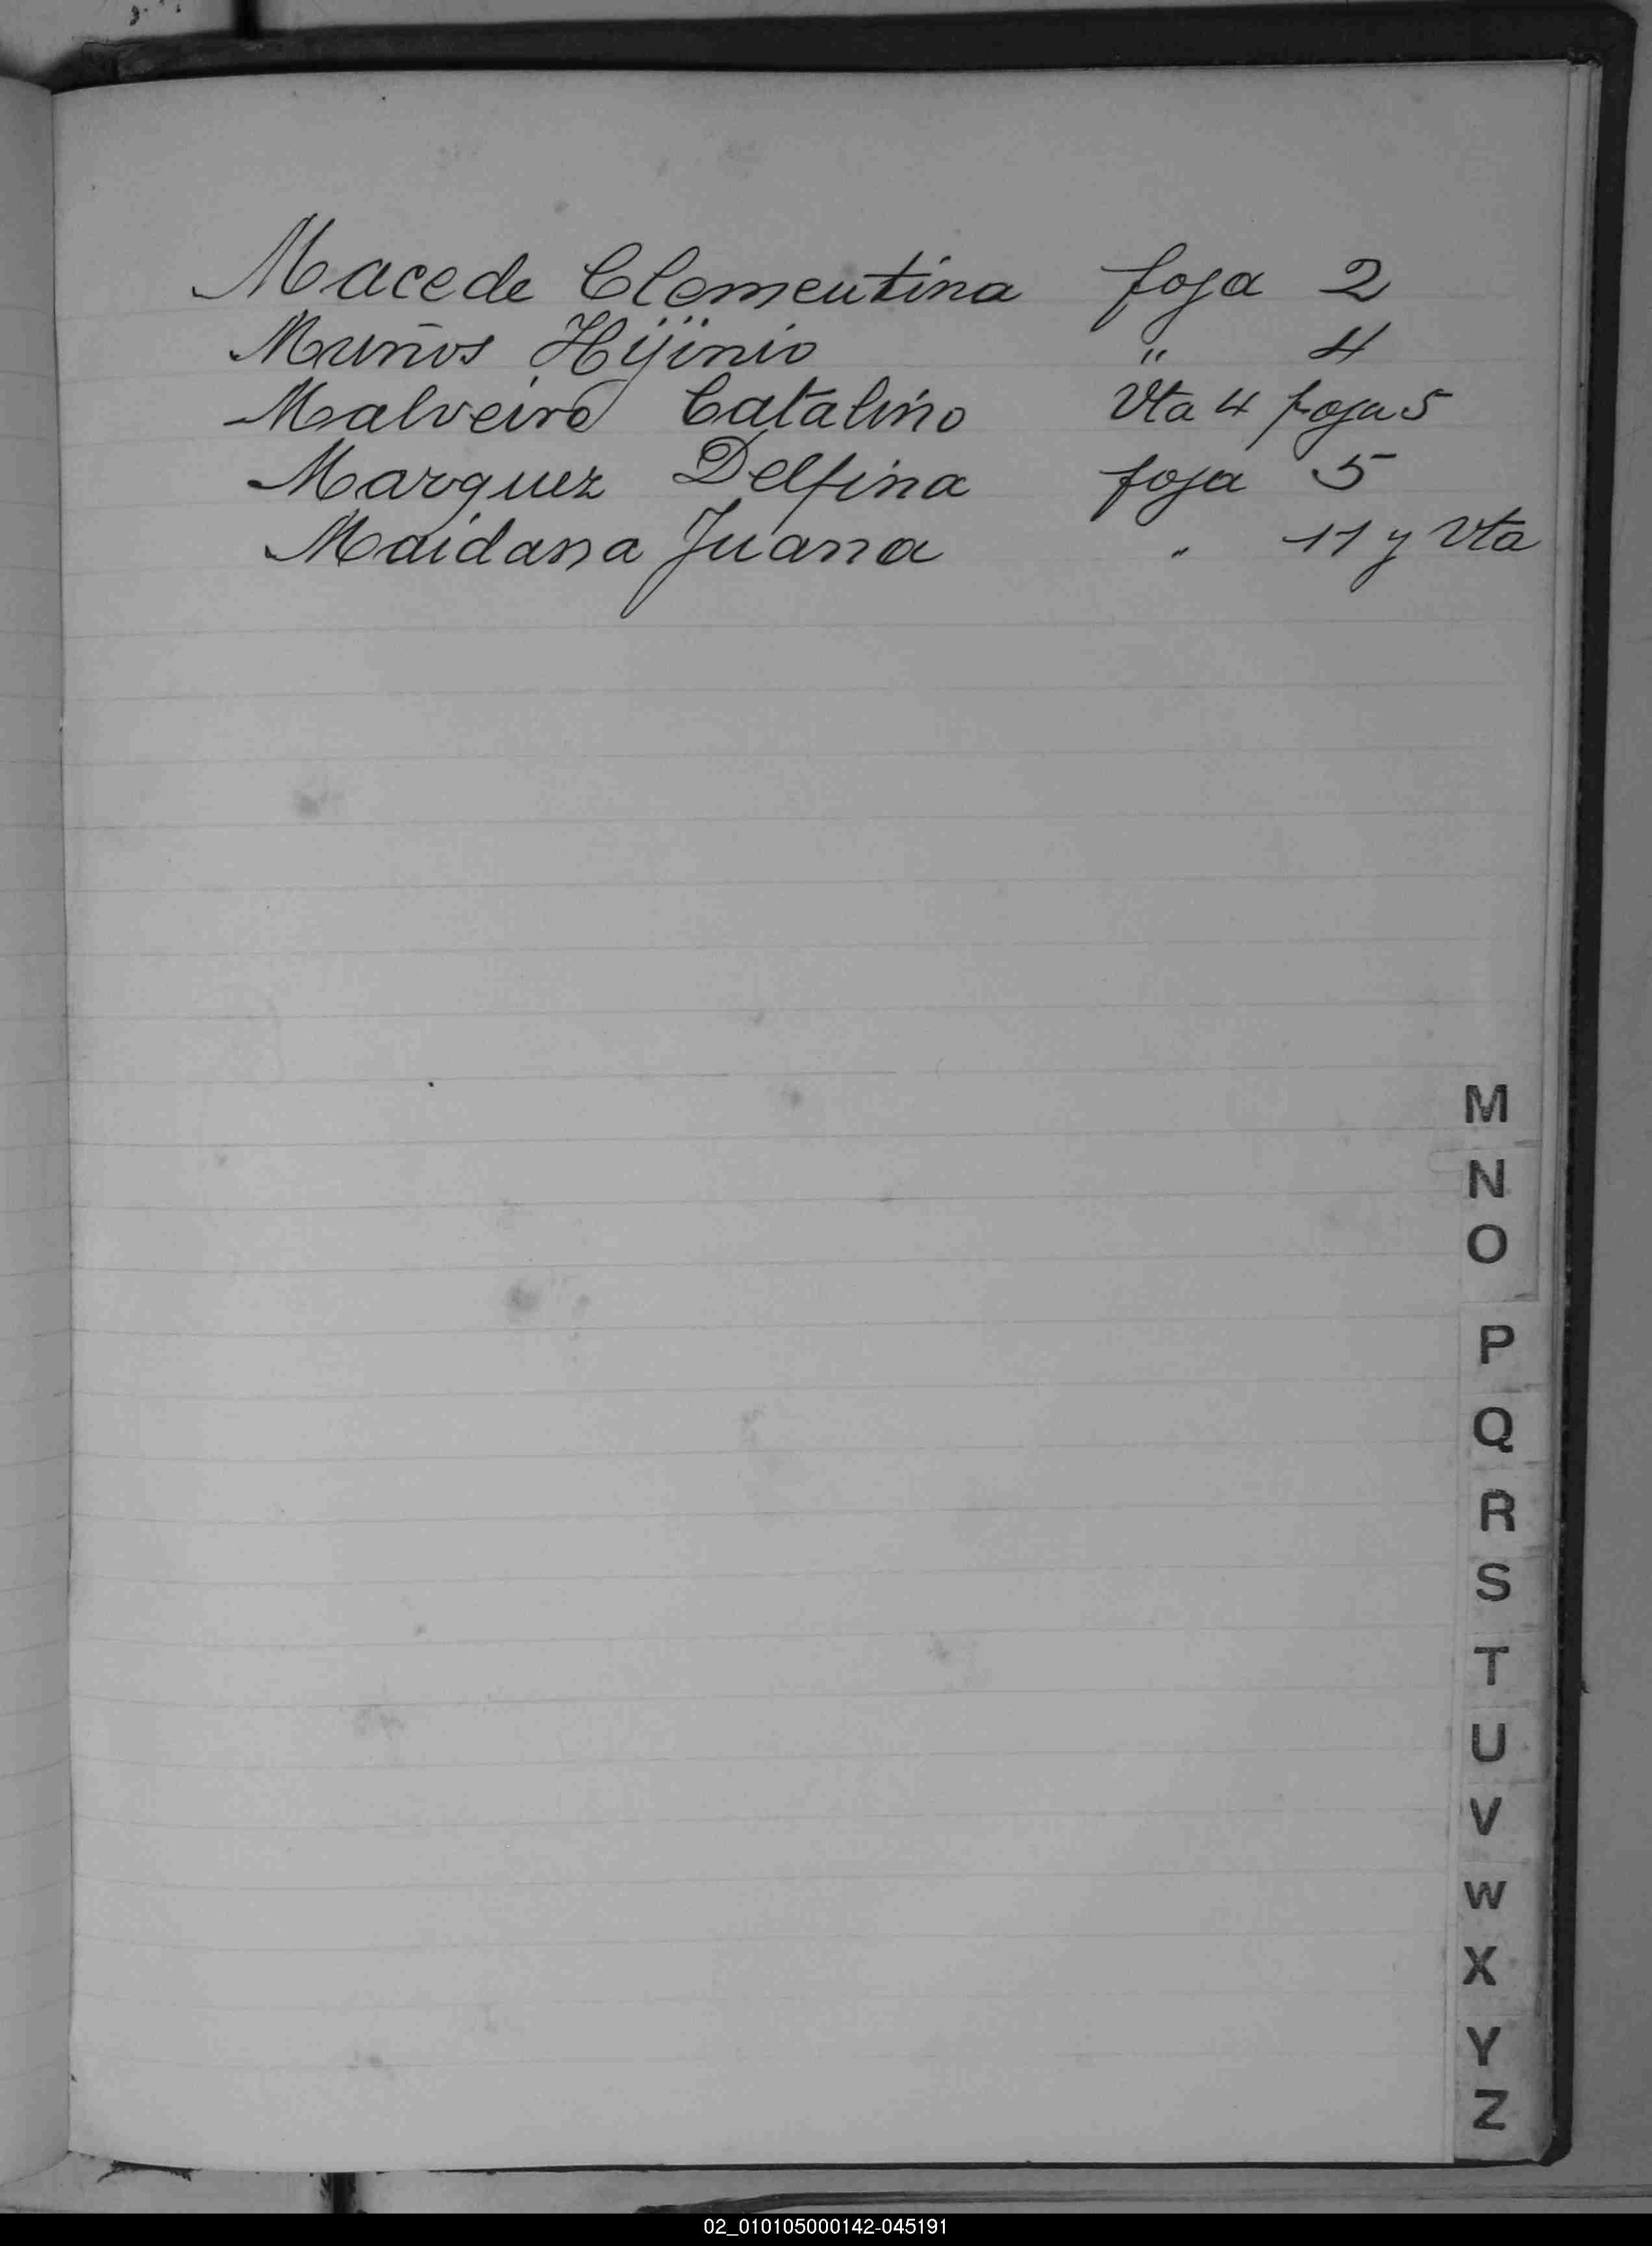 Macede Clementina foja 2
Muños Hijinio " 4
Malveiro Catalino Vta 4 foja 5
Marquez Delfina foja 5
Maidana Juana " 11 y Vta
M
N
O
P
Q
R
S
T
U
V
W
X
Y
Z
02_010105000142-045191